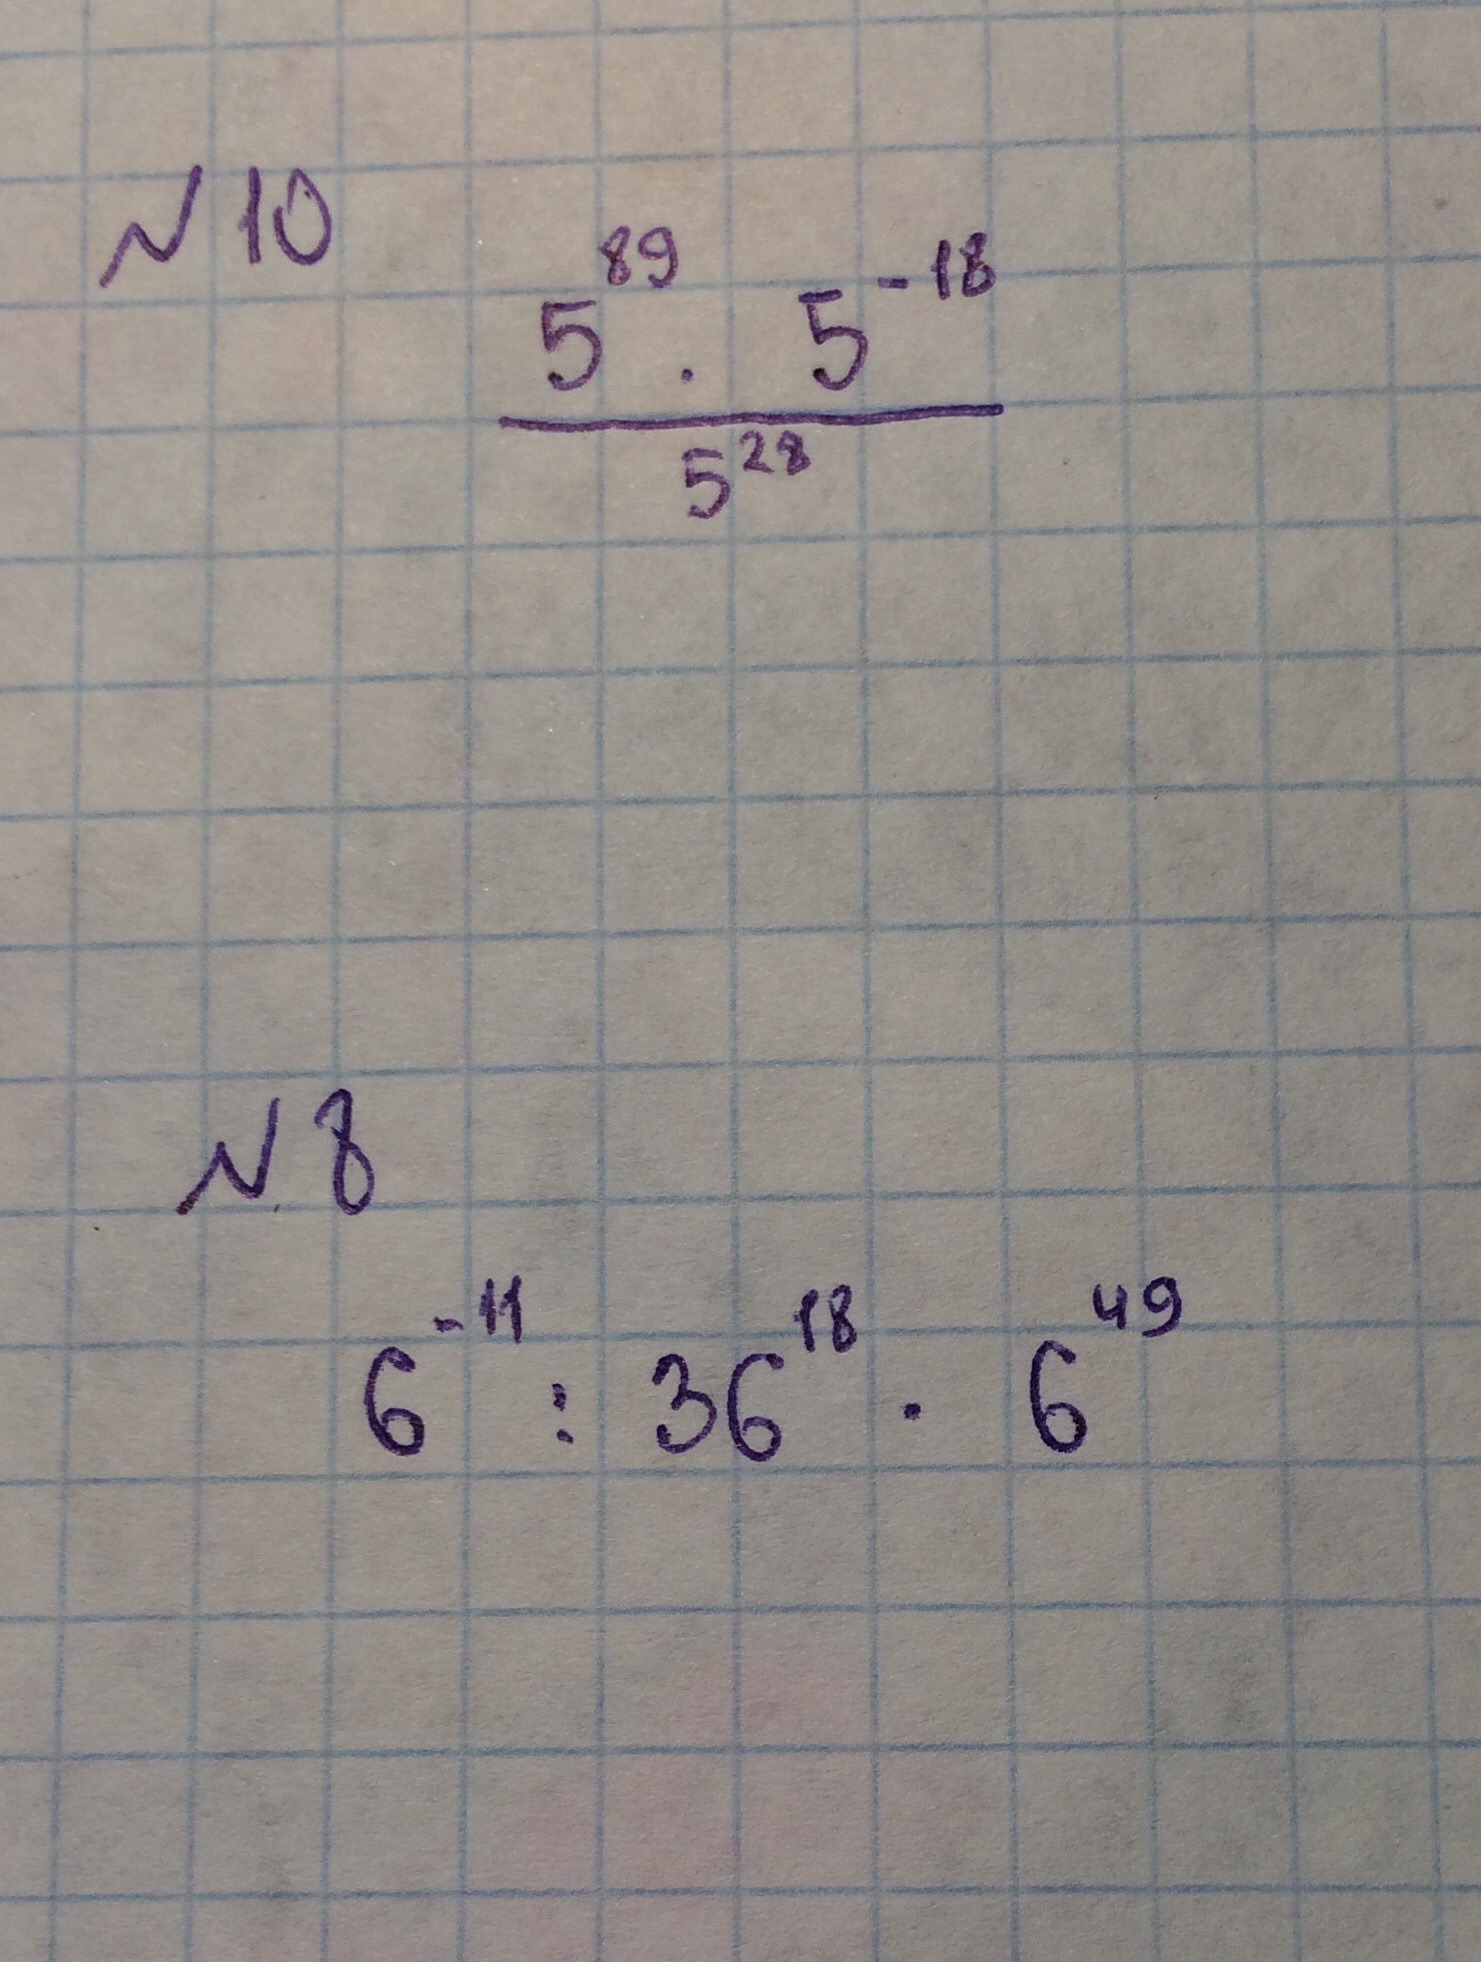 № 10
5^89 · 5^-18
5^28
№ 8
6^-11 : 36^18 · 6^49